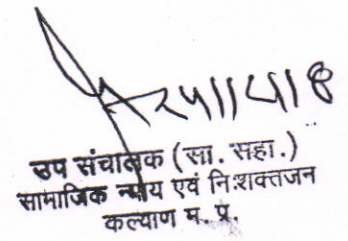 उप संचालक (सा. सहा.)
सामाजिक न्याय एवं निःशक्तजन
कल्याण म. प्र.